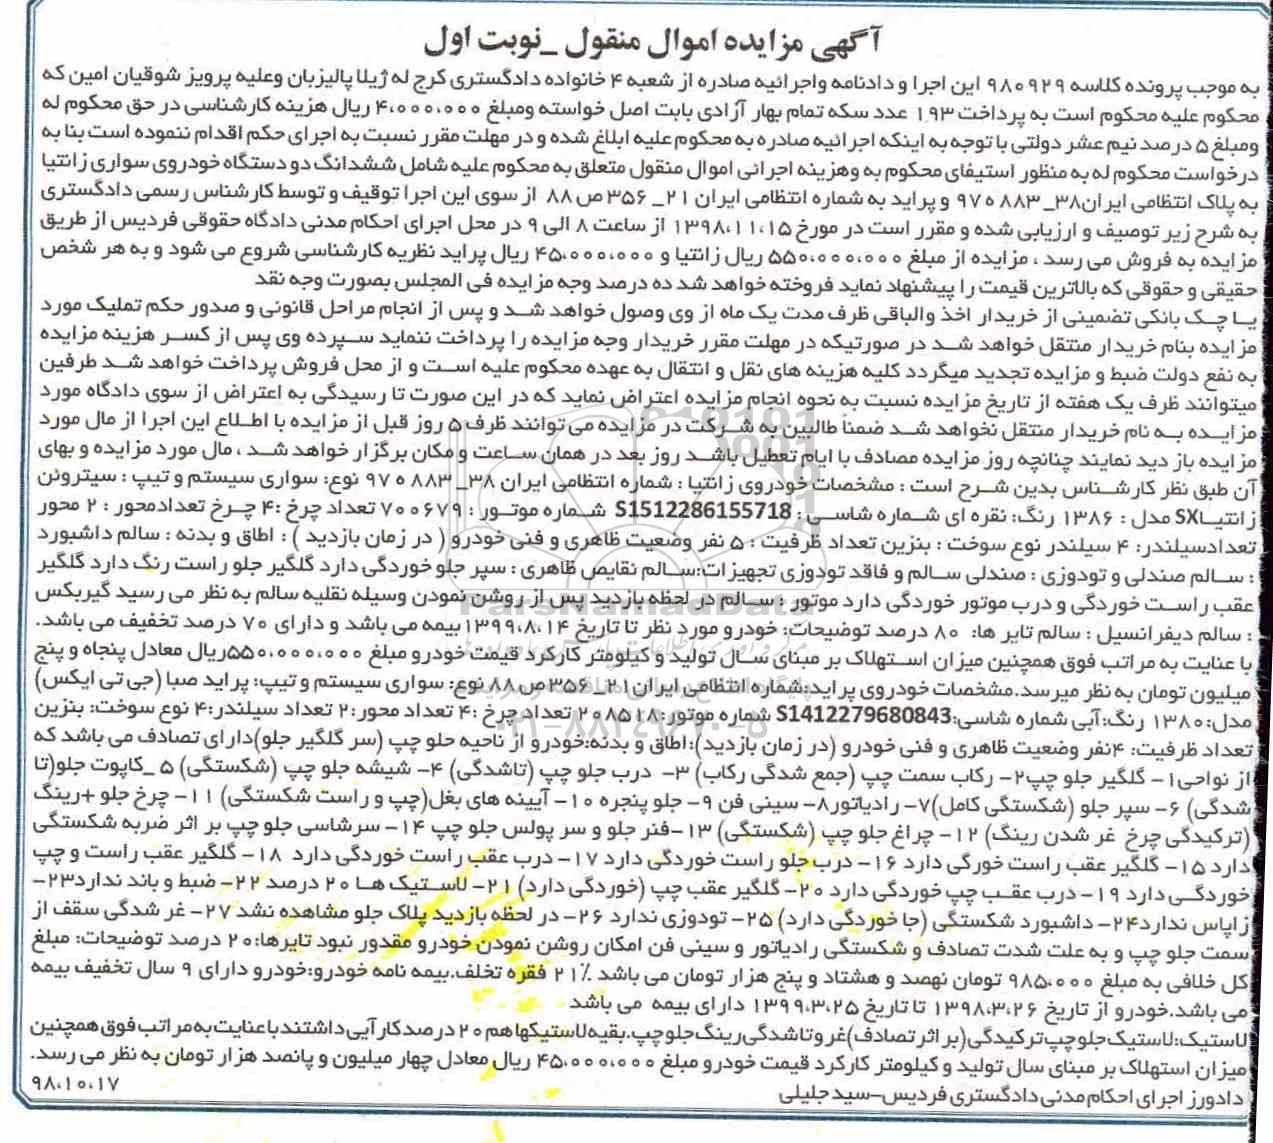 آگهی مزایده اموال منقول _نوبت اول
به موجب پرونده کلاسه ۹۸۰۹۲۹ این اجرا و دادنامه واجرائیه صادره از شعبه ۴ خانواده دادگستری کرج له ژیلا پالیزبان وعلیه پرویز شوقیان امین که
محکوم علیه محکوم است به پرداخت ۱۹۳ عدد سکه تمام بهار آزادی بابت اصل خواسته ومبلغ ۴،۰۰۰،۰۰۰ ریال هزینه کارشناسی در حق محکوم له
ومبلغ ۵ درصد نیم عشر دولتی با توجه به اینکه اجرائیه صادره به محکوم علیه ابلاغ شده و در مهلت مقرر نسبت به اجرای حکم اقدام ننموده است بنا به
درخواست محکوم له به منظور استیفای محکوم به وهزینه اجرائی اموال منقول متعلق به محکوم علیه شامل ششدانگ دو دستگاه خودروی سواری زانتیا
به پلاک انتظامی ایران۳۸_ ۸۸۳ ه ۹۷ و پراید به شماره انتظامی ایران ۲۱_ ۳۵۶ ص ۸۸ از سوی این اجرا توقیف و توسط کارشناس رسمی دادگستری
به شرح زیر توصیف و ارزیابی شده و مقرر است در مورخ ۱۳۹۸،۱۱،۱۵ از ساعت ۸ الی ۹ در محل اجرای احکام مدنی دادگاه حقوقی فردیس از طریق
مزایده به فروش می رسد ، مزایده از مبلغ ۵۵۰،۰۰۰،۰۰۰ ریال زانتیا و ۴۵،۰۰۰،۰۰۰ ریال پراید نظریه کارشناسی شروع می شود و به هر شخص
حقیقی و حقوقی که بالاترین قیمت را پیشنهاد نماید فروخته خواهد شد ده درصد وجه مزایده فی المجلس بصورت وجه نقد
یا چک بانکی تضمینی از خریدار اخذ والباقی ظرف مدت یک ماه از وی وصول خواهد شد و پس از انجام مراحل قانونی و صدور حکم تملیک مورد
مزایده بنام خریدار منتقل خواهد شد در صورتیکه در مهلت مقرر خریدار وجه مزایده را پرداخت ننماید سپرده وی پس از کسر هزینه مزایده
به نفع دولت ضبط و مزایده تجدید میگردد کلیه هزینه های نقل و انتقال به عهده محکوم علیه است و از محل فروش پرداخت خواهد شد طرفین
میتوانند ظرف یک هفته از تاریخ مزایده نسبت به نحوه انجام مزایده اعتراض نماید که در این صورت تا رسیدگی به اعتراض از سوی دادگاه مورد
مزایده به نام خریدار منتقل نخواهد شد ضمنا طالبین به شرکت در مزایده می توانند ظرف ۵ روز قبل از مزایده با اطلاع این اجرا از مال مورد
مزایده باز دید نمایند چنانچه روز مزایده مصادف با ایام تعطیل باشد روز بعد در همان ساعت و مکان برگزار خواهد شد ، مال مورد مزایده و بهای
آن طبق نظر کارشناس بدین شرح است : مشخصات خودروی زانتیا : شماره انتظامی ایران ۳۸_ ۸۸۳ ه ۹۷ نوع: سواری سیستم و تیپ : سیتروئن
زانتیاSX مدل : ۱۳۸۶ رنگ: نقره ای شماره شاسی : S1512286155718 شماره موتور : ۷۰۰۶۷۹ تعداد چرخ :۴ چرخ تعدادمحور : ۲ محور
تعدادسیلندر: ۴ سیلندر نوع سوخت : بنزین تعداد ظرفیت : ۵ نفر وضعیت ظاهری و فنی خودرو ( در زمان بازدید ) : اطاق و بدنه : سالم داشبورد
: سالم صندلی و تودوزی : صندلی سالم و فاقد تودوزی تجهیزات:سالم نقایص ظاهری : سپر جلو خوردگی دارد گلگیر جلو راست رنگ دارد گلگیر
عقب راست خوردگی و درب موتور خوردگی دارد موتور :سالم در لحظه بازدید پس از روشن نمودن وسیله نقلیه سالم به نظر می رسید گیربکس
: سالم دیفرانسیل : سالم تایر ها: ۸۰ درصد توضیحات: خودرو مورد نظر تا تاریخ ۱۳۹۹،۸،۱۴بیمه می باشد و دارای ۷۰ درصد تخفیف می باشد.
با عنایت به مراتب فوق همچنین میزان استهلاک بر مبنای سال تولید و کیلومتر کارکرد قیمت خودرو مبلغ ۵۵۰،۰۰۰،۰۰۰ریال معادل پنجاه و پنج
میلیون تومان به نظر میرسد.مشخصات خودروی پراید:شماره انتظامی ایران۲۱_ ۳۵۶ص۸۸ نوع: سواری سیستم و تیپ: پراید صبا (جی تی ایکس)
مدل:۱۳۸۰ رنگ:آبی شماره شاسی:S1412279680843 شماره موتور:۲۰۸۵۱۸ تعداد چرخ :۴ تعداد محور:۲ تعداد سیلندر:۴ نوع سوخت: بنزین
تعداد ظرفیت: ۴نفر وضعیت ظاهری و فنی خودرو (در زمان بازدید):اطاق و بدنه:خودرو از ناحیه حلو چپ (سر گلگیر جلو)دارای تصادف می باشد که
از نواحی۱- گلگیر جلو چپ۲- رکاب سمت چپ (جمع شدگی رکاب) ۳- درب جلو چپ (تاشدگی) ۴- شیشه جلو چپ (شکستگی) ۵ _کاپوت جلو(تا
شدگی) ۶- سپر جلو (شکستگی کامل)۷- رادیاتور۸- سینی فن ۹- جلو پنجره ۱۰- آیینه های بغل(چپ و راست شکستگی) ۱۱- چرخ جلو +رینگ
(ترکیدگی چرخ غر شدن رینگ) ۱۲- چراغ جلو چپ (شکستگی) ۱۳-فنر جلو و سر پولس جلو چپ ۱۴- سرشاسی جلو چپ بر اثر ضربه شکستگی
دارد ۱۵- گلگیر عقب راست خورگی دارد ۱۶- درب جلو راست خوردگی دارد ۱۷- درب عقب راست خوردگی دارد ۱۸- گلگیر عقب راست و چپ
خوردگی دارد ۱۹- درب عقب چپ خوردگی دارد ۲۰- گلگیر عقب چپ (خوردگی دارد) ۲۱- لاستیک ها ۲۰ درصد ۲۲- ضبط و باند ندارد۲۳-
زاپاس ندارد۲۴- داشبورد شکستگی (جا خوردگی دارد) ۲۵- تودوزی ندارد ۲۶- در لحظه بازدید پلاک جلو مشاهده نشد ۲۷- غر شدگی سقف از
سمت جلو چپ و به علت شدت تصادف و شکستگی رادیاتور و سینی فن امکان روشن نمودن خودرو مقدور نبود تایرها:۲۰ درصد توضیحات: مبلغ
کل خلافی به مبلغ ۹۸۵،۰۰۰ تومان نهصد و هشتاد و پنج هزار تومان می باشد ٪۲۱ فقره تخلف.بیمه نامه خودرو:خودرو دارای ۹ سال تخفیف بیمه
می باشد.خودرو از تاریخ ۱۳۹۸،۳،۲۶ تا تاریخ ۱۳۹۹،۳،۲۵ دارای بیمه می باشد
لاستیک:لاستیک جلو چپ ترکیدگی(بر اثر تصادف)غر و تاشدگی رینگ جلو چپ.بقیه لاستیکها هم ۲۰ درصد کارآیی داشتند با عنایت به مراتب فوق همچنین
میزان استهلاک بر مبنای سال تولید و کیلومتر کارکرد قیمت خودرو مبلغ ۴۵،۰۰۰،۰۰۰ ریال معادل چهار میلیون و پانصد هزار تومان به نظر می رسد.
دادورز اجرای احکام مدنی دادگستری فردیس-سید جلیلی
۹۸،۱۰،۱۷
ParsNamadData
۰۲۱-۸۸۳۴۹۶۷۰-۵